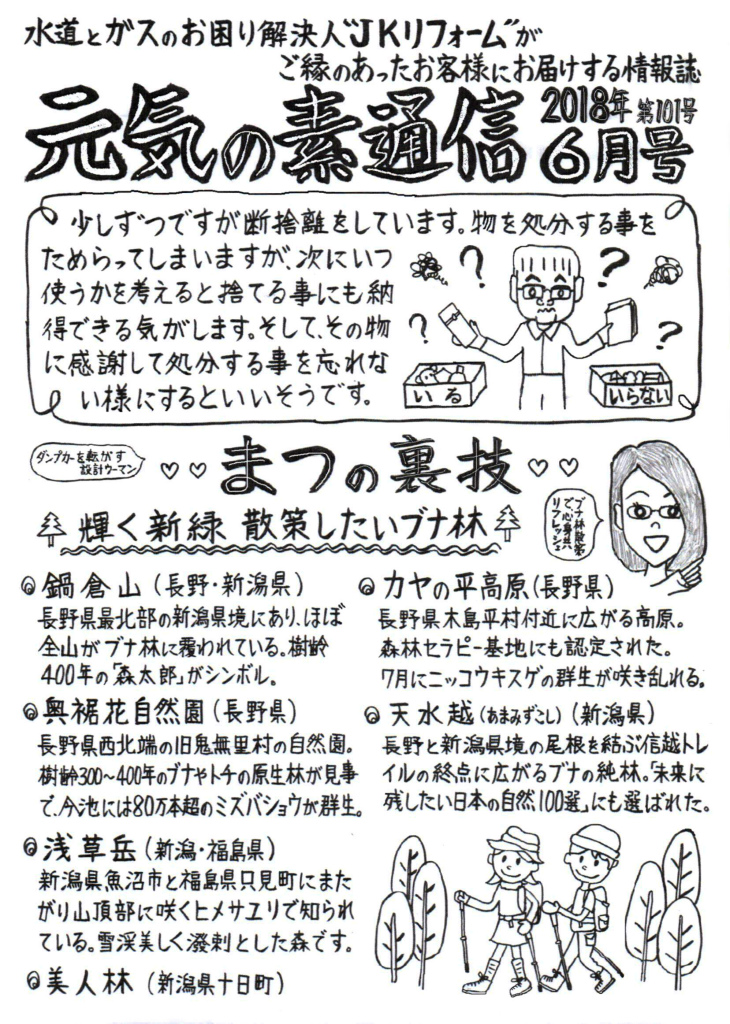 水道とガスのお困り解決人"JKリフォーム"が
ご縁のあったお客様にお届けする情報誌
元気の素通信
2018年 第101号
6月号
少しずつですが断捨離をしています。物を処分する事を
ためらってしまいますが、次にいつ
使うかを考えると捨てる事にも納
得できる気がします。そして、その物
に感謝して処分する事を忘れな
い様にするといいそうです。
?
?
?
?
いる
いらない
ダンプカーを転がす
設計ウーマン
♡♡ まつの裏技 ♡♡
輝く新緑 散策したいブナ林
ブナ林散策
で、心身共
リフレッシュ
鍋倉山 (長野・新潟県)
長野県最北部の新潟県境にあり、ほぼ
全山がブナ林に覆われている。樹齢
400年の「森太郎」がシンボル。
奥裾花自然園 (長野県)
長野県西北端の旧鬼無里村の自然園。
樹齢300〜400年のブナやトチの原生林が見事
で、今池には80万本超のミズバショウが群生。
浅草岳 (新潟・福島県)
新潟県魚沼市と福島県只見町にまた
がり山頂部に咲くヒメサユリで知られ
ている。雪渓美しく溌剌とした森です。
美人林 (新潟県十日町)
カヤの平高原 (長野県)
長野県木島平村付近に広がる高原。
森林セラピー基地にも認定された。
7月にニッコウキスゲの群生が咲き乱れる。
天水越 (あまみずこし) (新潟県)
長野と新潟県境の尾根を結ぶ信越トレ
イルの終点に広がるブナの純林。「未来に
残したい日本の自然100選」にも選ばれた。